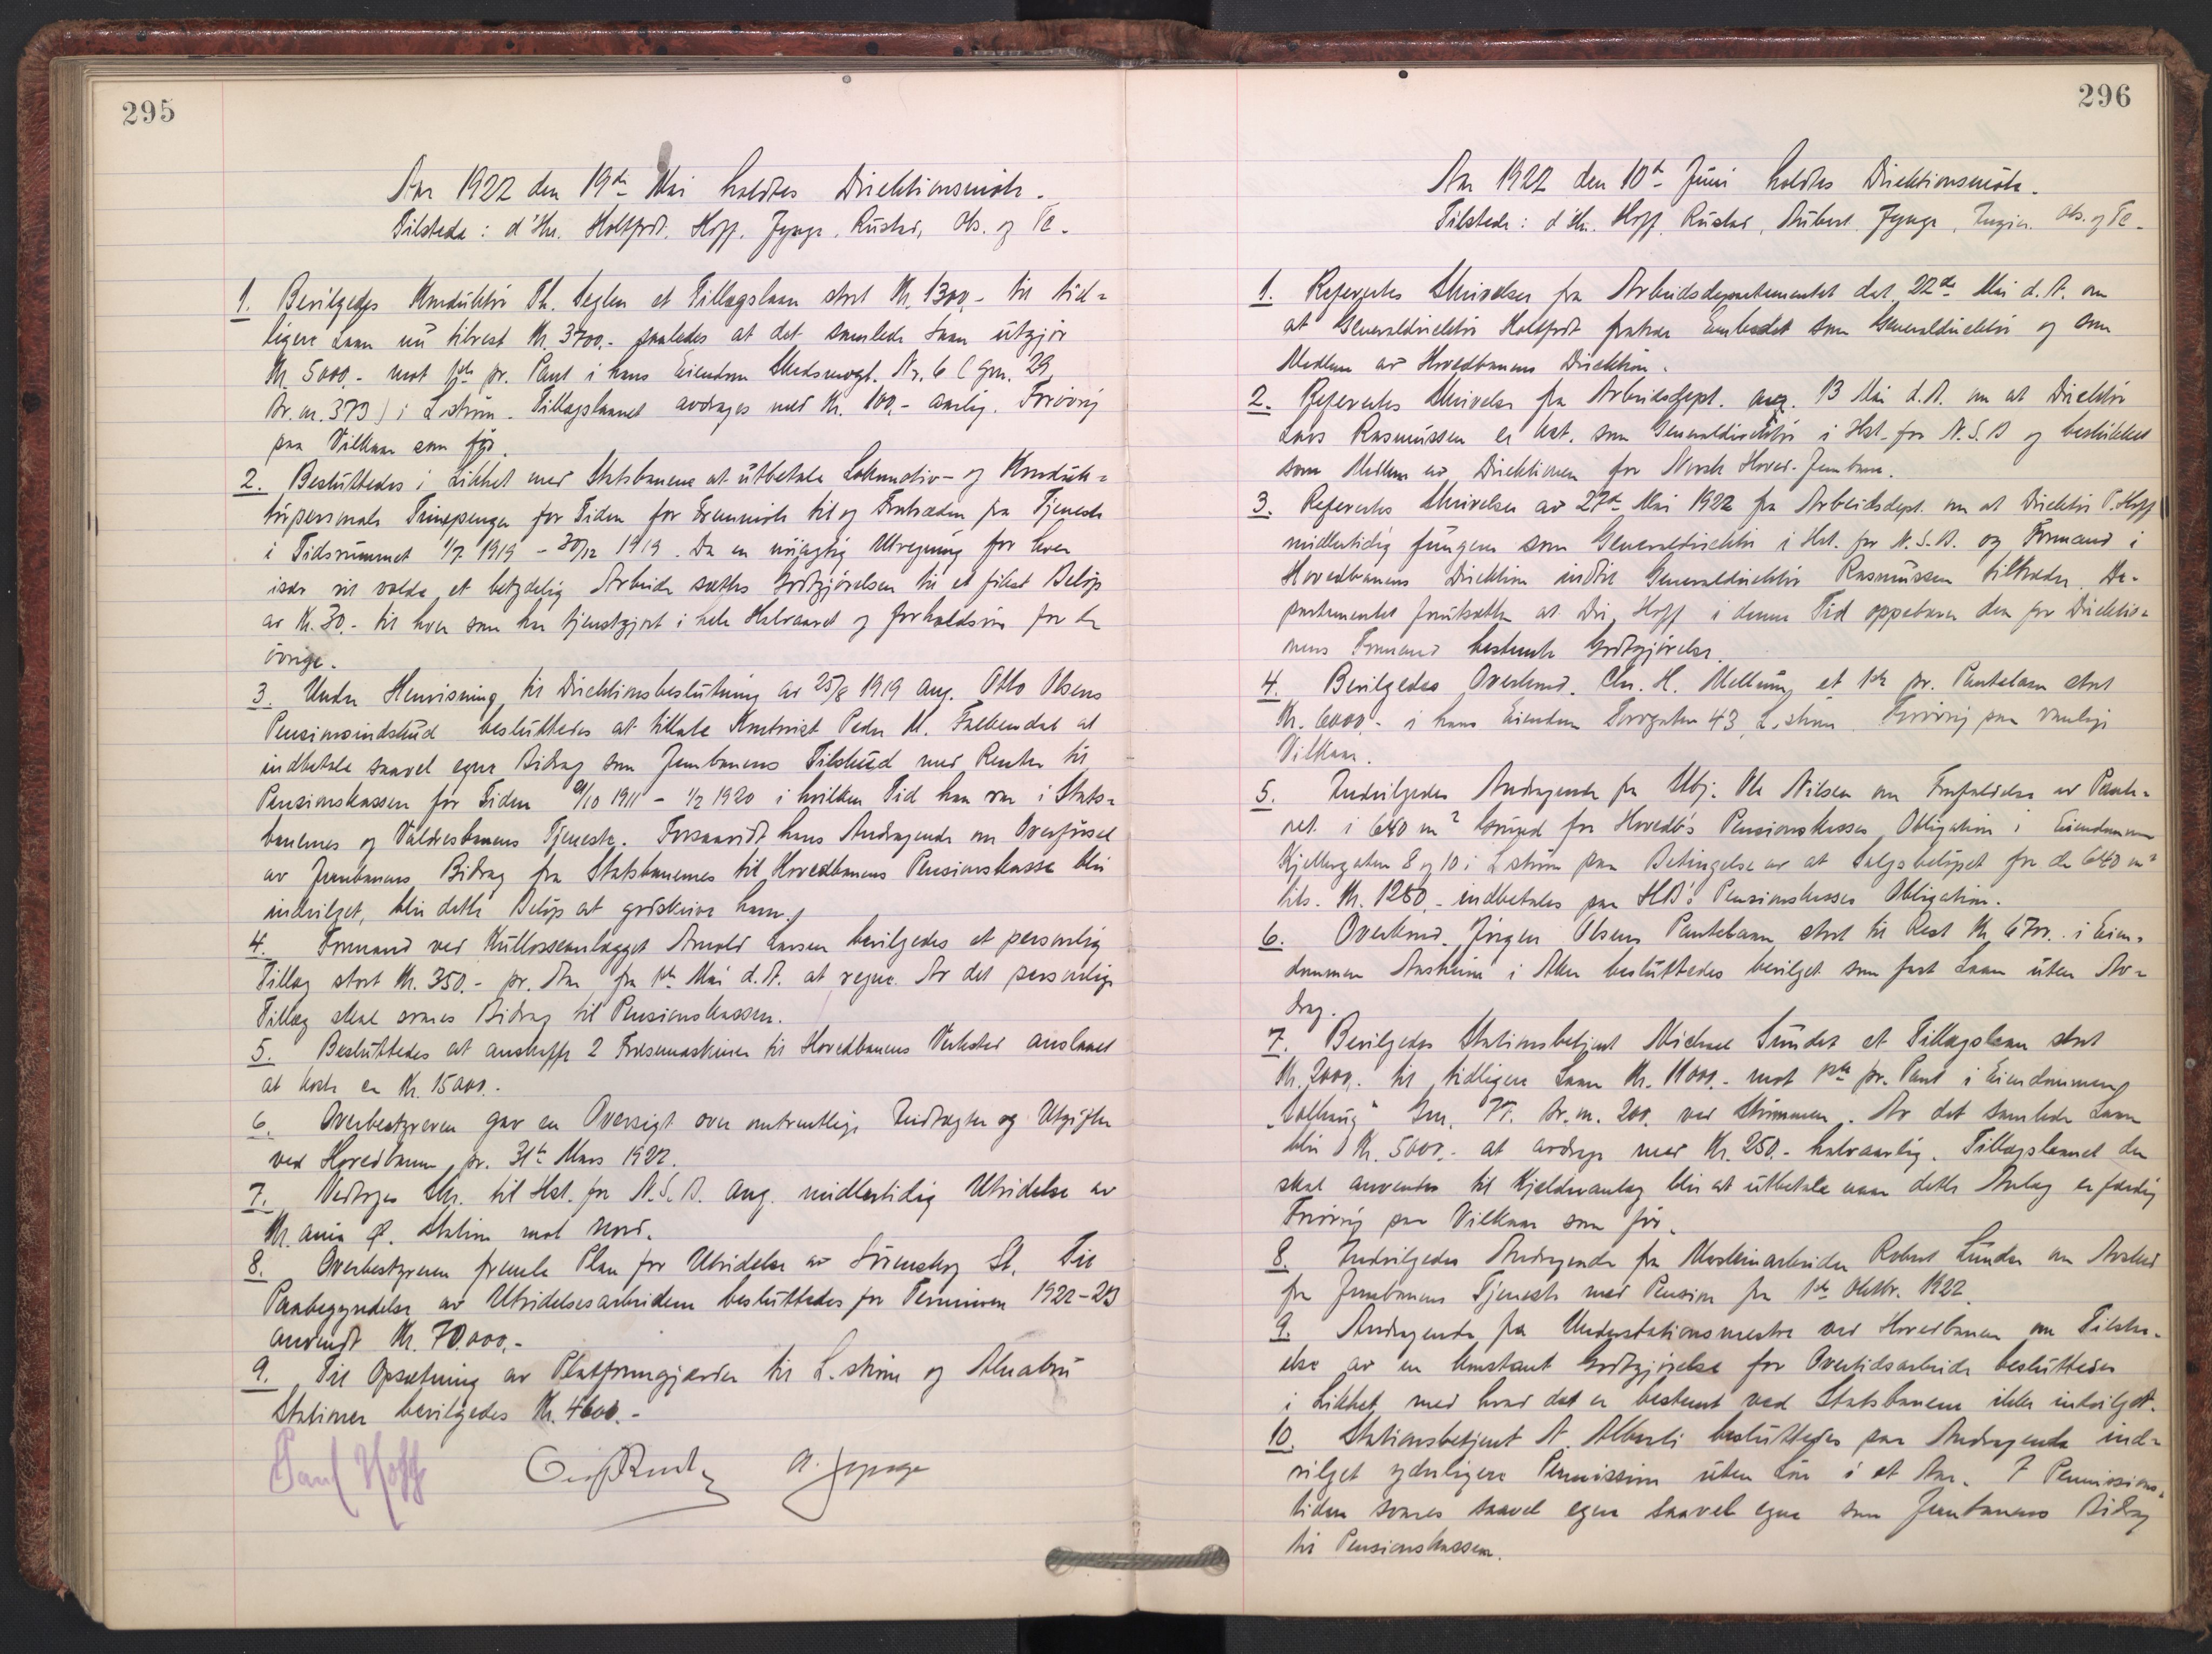 295
Aar 1922 den 19de Mai holdtes Direktionsmöte.
Tilstede: d'Hr. Holtfodt. Hoff. Jynge. Rustad, Obs. og Te.
1. Bevilgedes Konduktör Th. Seglen et Tillægslaan stort Kr. 1300.- til tid=
ligere Laan nu tilrest Kr. 3700.- saaledes at det samlede Laan utgjör
Kr. 5000.- mot 1ste pr. Pant i hans Eiendom Skedsmogt. Nr. 6 (Gm. 29,
Br. nr. 373) i L.ström. Tillægslaanet avdrages med Kr. 100.- aarlig. Forövrig
paa Vilkaar som för.
2. Besluttedes i Likhet med Statsbanene at utbetale Lokomotiv- og Konduk=
törpersonale Timepenger for Tiden for Fremmöte til og Fratræden fra Tjeneste
i Tidsrummet 1/7 1919 - 30/12 1919. Da en nöiagtig Utregning for hver
især vil volde et betydelig Arbeide sættes Godtgjörelsen til et fikst Belöp
av Kr. 30.- til hver som har tjenstgjort i hele Halvaaret og forholdsvis for de
övrige.
3. Under Henvisning til Direktionsbeslutning av 25/8 1919 ang. Otto Olsens
Pensionsindskud besluttedes at tillate Kontorist Peder M. Falkendal at
indbetale saavel egne Bidrag som Jernbanens Tilskud med Renter til
Pensionskassen for Tiden /10 1911 - 1/2 1920 i hvilken Tid han var i Stats=
banernes og Valdresbanens Tjeneste. Forsaavidt hans Andragende om Overförsel
av Jernbanens Bidrag fra Statsbanernes til Hovedbanens Pensionskasse blir
indvilget, blir dette Belöp at godskrive ham.
4. Formand ved Kullosseanlægget Arnold Larsen bevilgedes et personlig
Tillæg stort Kr. 350.- pr. Aar fra 1ste Mai d.A. at regne. Av det personlige
Tillæg skal svares Bidrag til Pensionskassen.
5. Besluttedes at anskaffe 2 Fræsemaskiner til Hovedbanens Verksted anslaaet
at koste ca Kr. 15000.-
6. Overbestyreren gav en Oversigt over omtrentlige Indtægter og Utgifter
ved Hovedbanen pr. 31te Mars 1922.
7. Vedtoges Skr. til Hst. for N.S.B. ang. midlertidig Utvidelse av
Kr.ania Ø. Station mot Nord.
8. Overbestyreren fremla Plan for Utvidelse av Lörenskog St. Til
Paabegyndelse av Utvidelsesarbeidene besluttedes for Terminen 1922-23
anvendt Kr. 70.000.-
9. Til Opsætning av Platformgjærder til L.ström og Alnabru
Stationer bevilgedes Kr. 4600.-
Paul Hoff
A. Jynge
296
Aar 1922 den 10de Juni holdtes Direktionsmöte.
Tilstede: d'Hr. Hoff, Rustad, Aubert. Jynge, Obs. og Te.
1. Referertes Skrivelse fra Arbeidsdepartementet dat. 22de Mai d.A. om
at Generaldirektör Holtfodt fratrær Embedet som Generaldirektör og som
Medlem av Hovedbanens Direktion.
2. Referertes Skrivelse fra Arbeidsdept. ang. 13 Mai d.A. om at Direktör
Lars Rasmussen er kst. som Generaldirektör i Hst. for N.S.B og beskikket
som Medlem av Direktionen for Norsk Hoved-Jernbane.
3. Referertes Skrivelse av 27de Mai 1922 fra Arbeidsdept. om at Direktör P. Hoff
midlertidig fungerer som Generaldirektör i Hst. for N.S.B. og Formand i
Hovedbanens Direktion indtil Generaldirektör Rasmussen tiltræder. De-
partementet forutsætter at Dir. Hoff i denne Tid oppebærer den for Direktio=
nens Formand bestemte Godtgjörelse.
4. Bevilgedes Overkond. Chr. H. Mellum et 1ste pr. Pantelaan stort
Kr. 6000.- i hans Eiendom Torvgaten 43, L.ström. Forövrig paa vanlige
Vilkaar.
5. Indvilgedes Andragende fra Ole Nilsen om Frafaldelse av Pante=
ret i 640 m² Grund for Hovedb's Pensionskasses Obligation i Eiendommen
Kjellergaten 8 og 10 i L.ström paa Betingelse av at Salgsbelöpet for de 640 m²
Kr. 1280.- indbetales paa HB's Pensionskasses Obligation.
6. Overkond. Jörgen Olsens Pantelaan stort til Rest Kr. 6700.- i Eien=
dommen i Aker besluttedes bevilget som fast Laan uten Av=
drag.
7. Bevilgedes Stationsbetjent Michael Sundet et Tillægslaan stort
Kr. 2000.- til tidligere Laan Kr. 11000.- mot 1ste pr. Pant i Eiendommen
"Solhaug" Gnr. 75. Br.nr. 200. ved Strömmen. Av det samlede Laan
blir Kr. 5000.- at avdrage med Kr. 250.- halvaarlig. Tillægslaanet der
skal anvendes til Kjelderanlæg blir at utbetale naar dette Anlæg er færdig
Forövrig paa Vilkaar som för.
8. Indvilgedes Andragende fra Maskinarbeider Robert Lunder om Avsked
fra Jernbanens Tjeneste med Pension fra 1ste Oktbr. 1922.
9. Andragende fra Understationsmestre ved Hovedbanen om Tilstaa-
else av en konstant Godtgjörelse for Overtidsarbeide besluttedes
i Likhet med hvad det er bestemt ved Statsbanene ikke indvilget.
10. Stationsbetjent A. Alberti besluttedes paa Andragende ind=
vilget yderligere Permission uten Lön i et Aar. I Permissions=
tiden svares saavel egne saavel egne som Jernbanens Bidrag
til Pensionskassen.